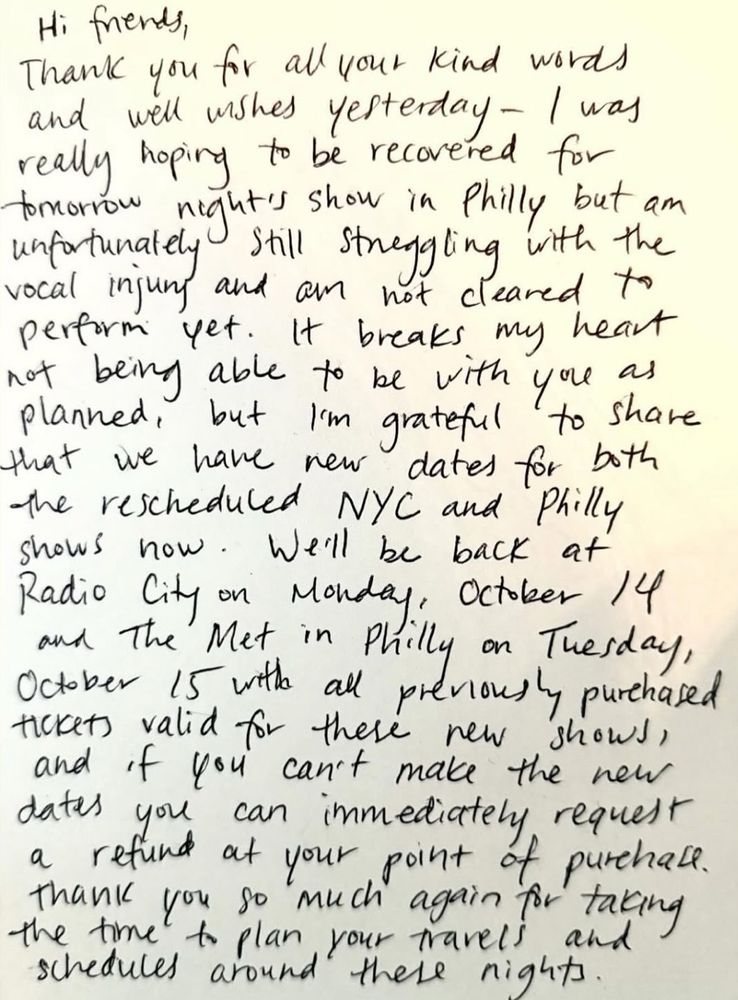 Hi friends,
Thank you for all your kind words
and well wishes yesterday – I was
really hoping to be recovered for
tomorrow night's show in Philly but am
unfortunately still struggling with the
vocal injury and am not cleared to
perform yet. It breaks my heart
not being able to be with you as
planned, but I'm grateful to share
that we have new dates for both
the rescheduled NYC and Philly
shows now. We'll be back at
Radio City on Monday, October 14
and The Met in Philly on Tuesday,
October 15 with all previously purchased
tickets valid for these new shows,
and if you can't make the new
dates you can immediately request
a refund at your point of purchase.
Thank you so much again for taking
the time to plan your travels and
schedules around these nights.